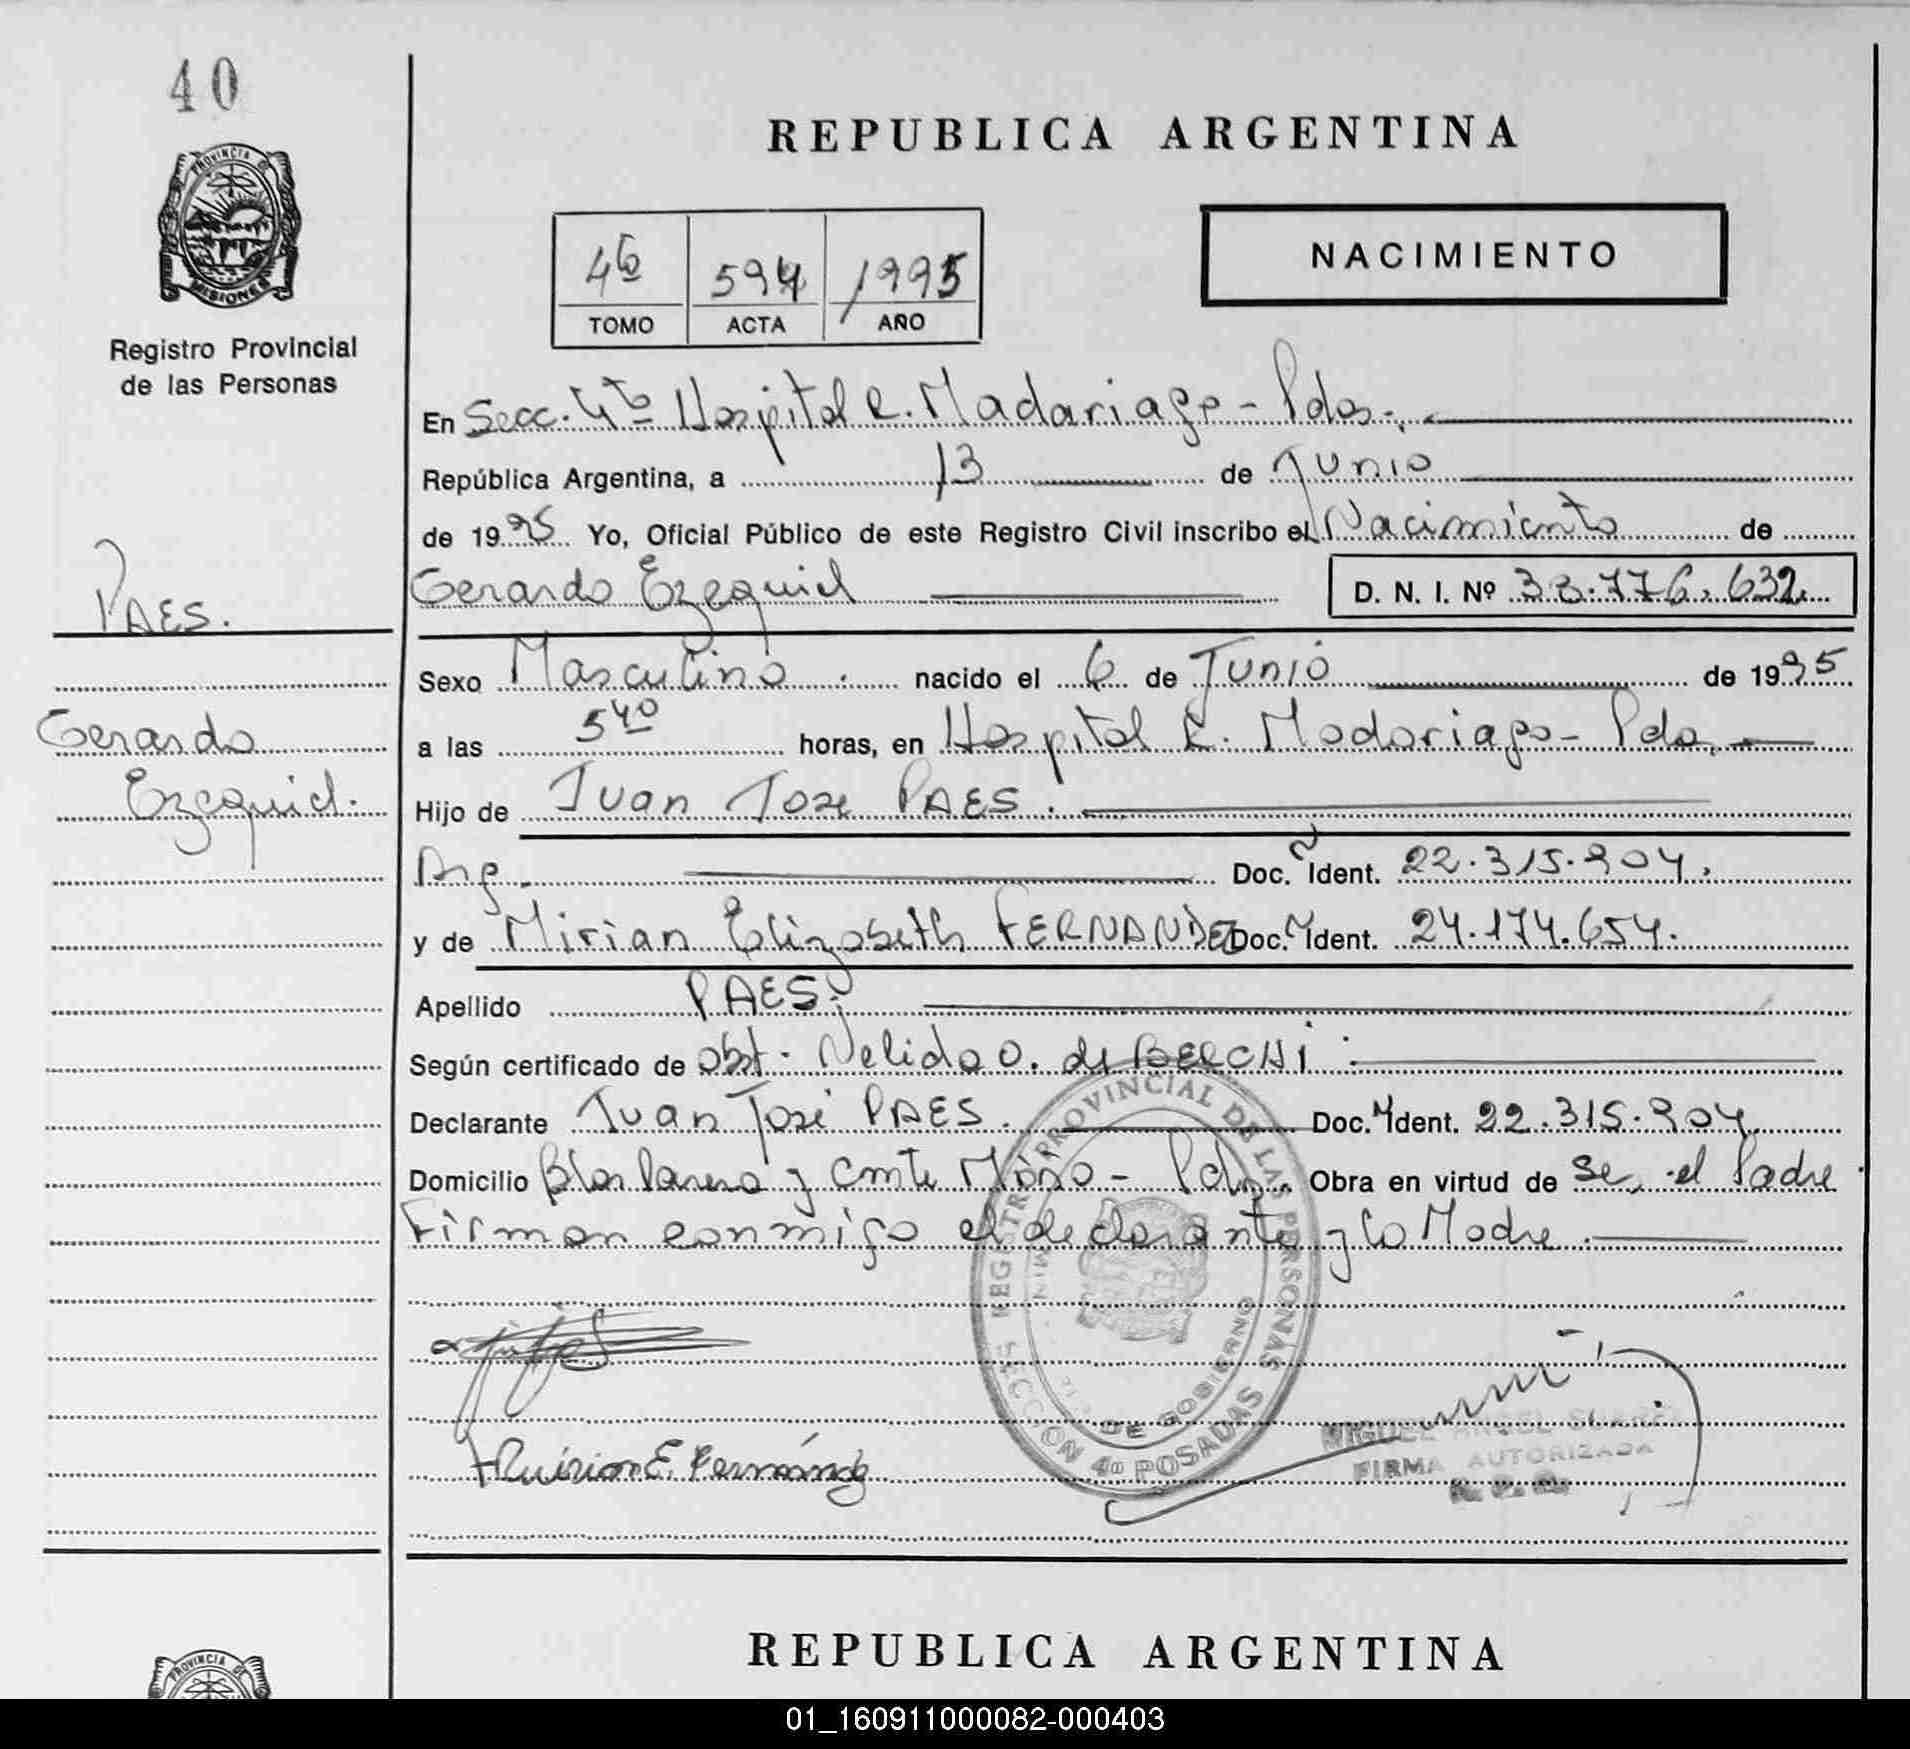 40
PROVINCIA DE
MISIONES
Registro Provincial
de las Personas
REPUBLICA ARGENTINA
4to 594 1995
TOMO ACTA AÑO
NACIMIENTO
En Secc. 4to Hospital R. Madariaga - Pdas.
República Argentina, a 13 de Junio
de 1995 Yo, Oficial Público de este Registro Civil inscribo el Nacimiento de
PAES.
Gerardo Ezequiel D. N. I. Nº 38.776.632
Sexo Masculino. nacido el 6 de Junio de 1995
Gerardo
a las 5 40 horas, en Hospital R. Madariaga - Pdas.
Ezequiel.
Hijo de Juan Jose PAES.
Arg. Doc. Ident. 22.315.904.
y de Mirian Elizabeth FERNANDEZ Doc. Ident. 24.174.654.
Apellido PAES.
Según certificado de obst. Nelida O. de BERCHI
Declarante Juan José PAES. Doc. Ident. 22.315.904
Domicilio Blas Parera y Cmte Mono - Pdas. Obra en virtud de Ser el Padre
Firman conmigo el declarante y la Madre.
REGISTRO PROVINCIAL DE LAS PERSONAS
DE GOBIERNO
SECCION 4º POSADAS
Mirian E. Fernández
MIGUEL ANGEL SUAREZ
FIRMA AUTORIZADA
REPUBLICA ARGENTINA
PROVINCIA DE
01_160911000082-000403